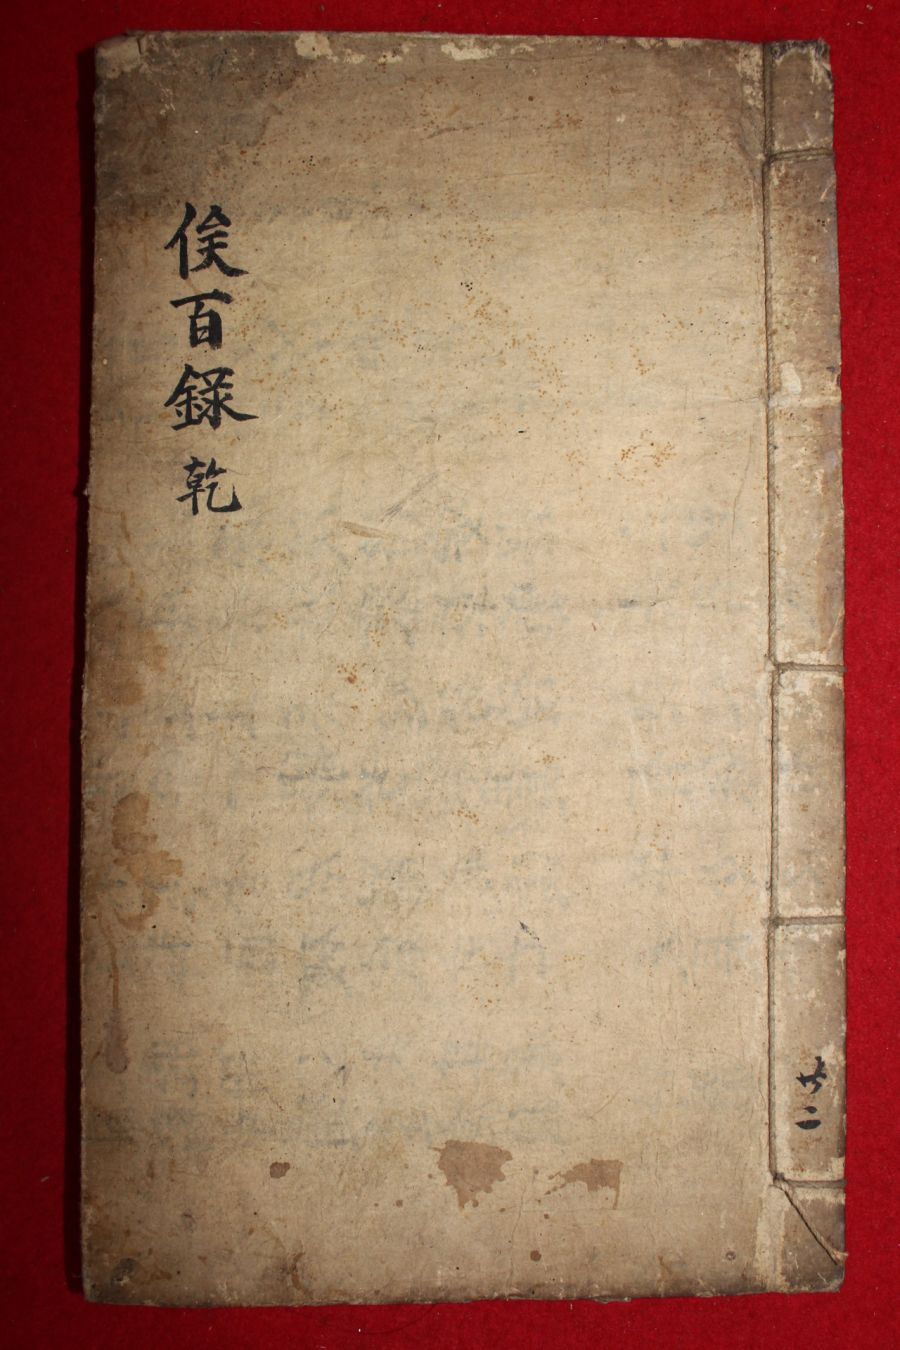 俟百錄 乾
共二